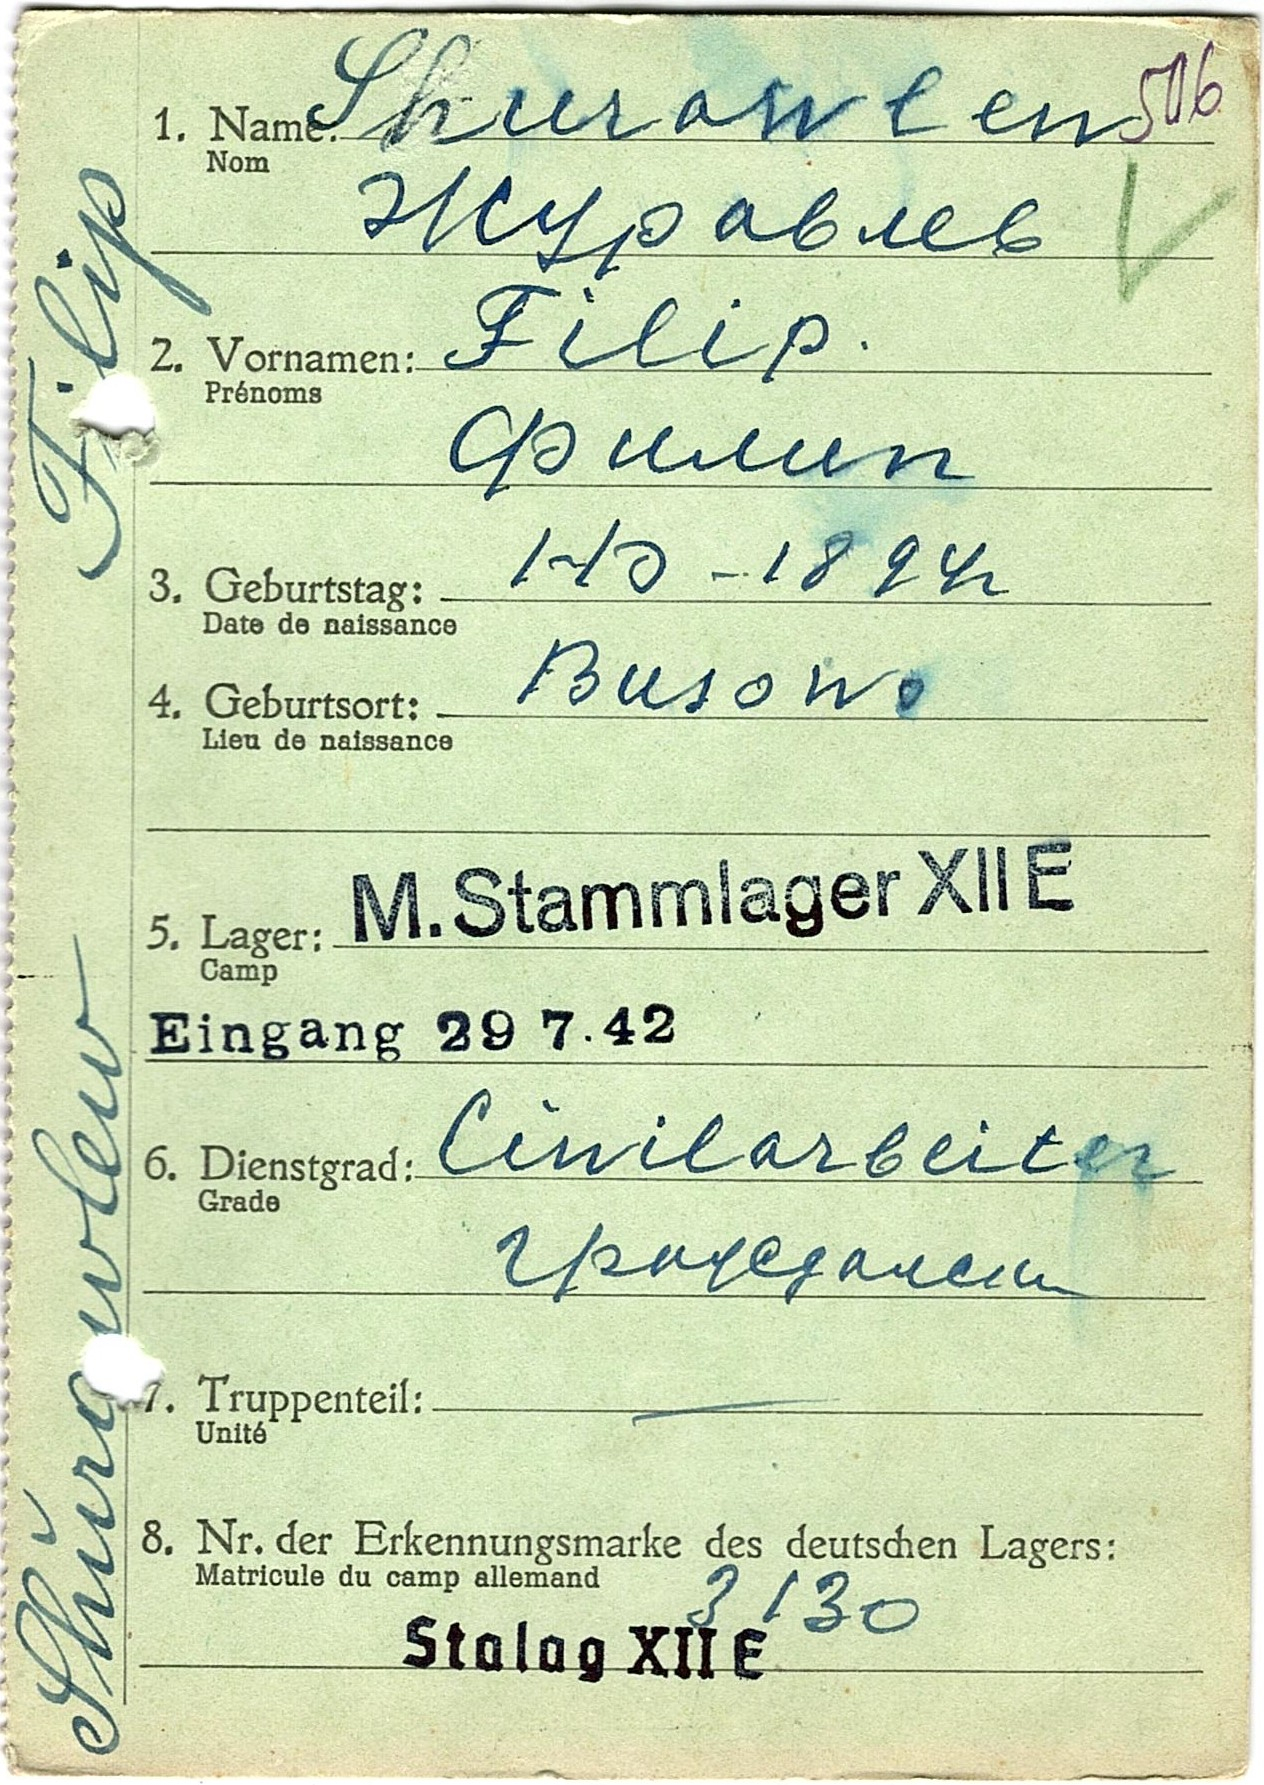 506
1. Name: Shurawlew
Nom
Журавлев
2. Vornamen: Filip.
Prénoms
Филип
3. Geburtstag: - 1894
Date de naissance
4. Geburtsort: Busowo
Lieu de naissance
5. Lager: M. Stammlager XII E
Camp
Eingang 29 7.42
6. Dienstgrad: Civilarbeiter
Grade
7. Truppenteil:
Unité
8. Nr. der Erkennungsmarke des deutschen Lagers:
Matricule du camp allemand
3130
Stalag XII E
Shurawlew Filip